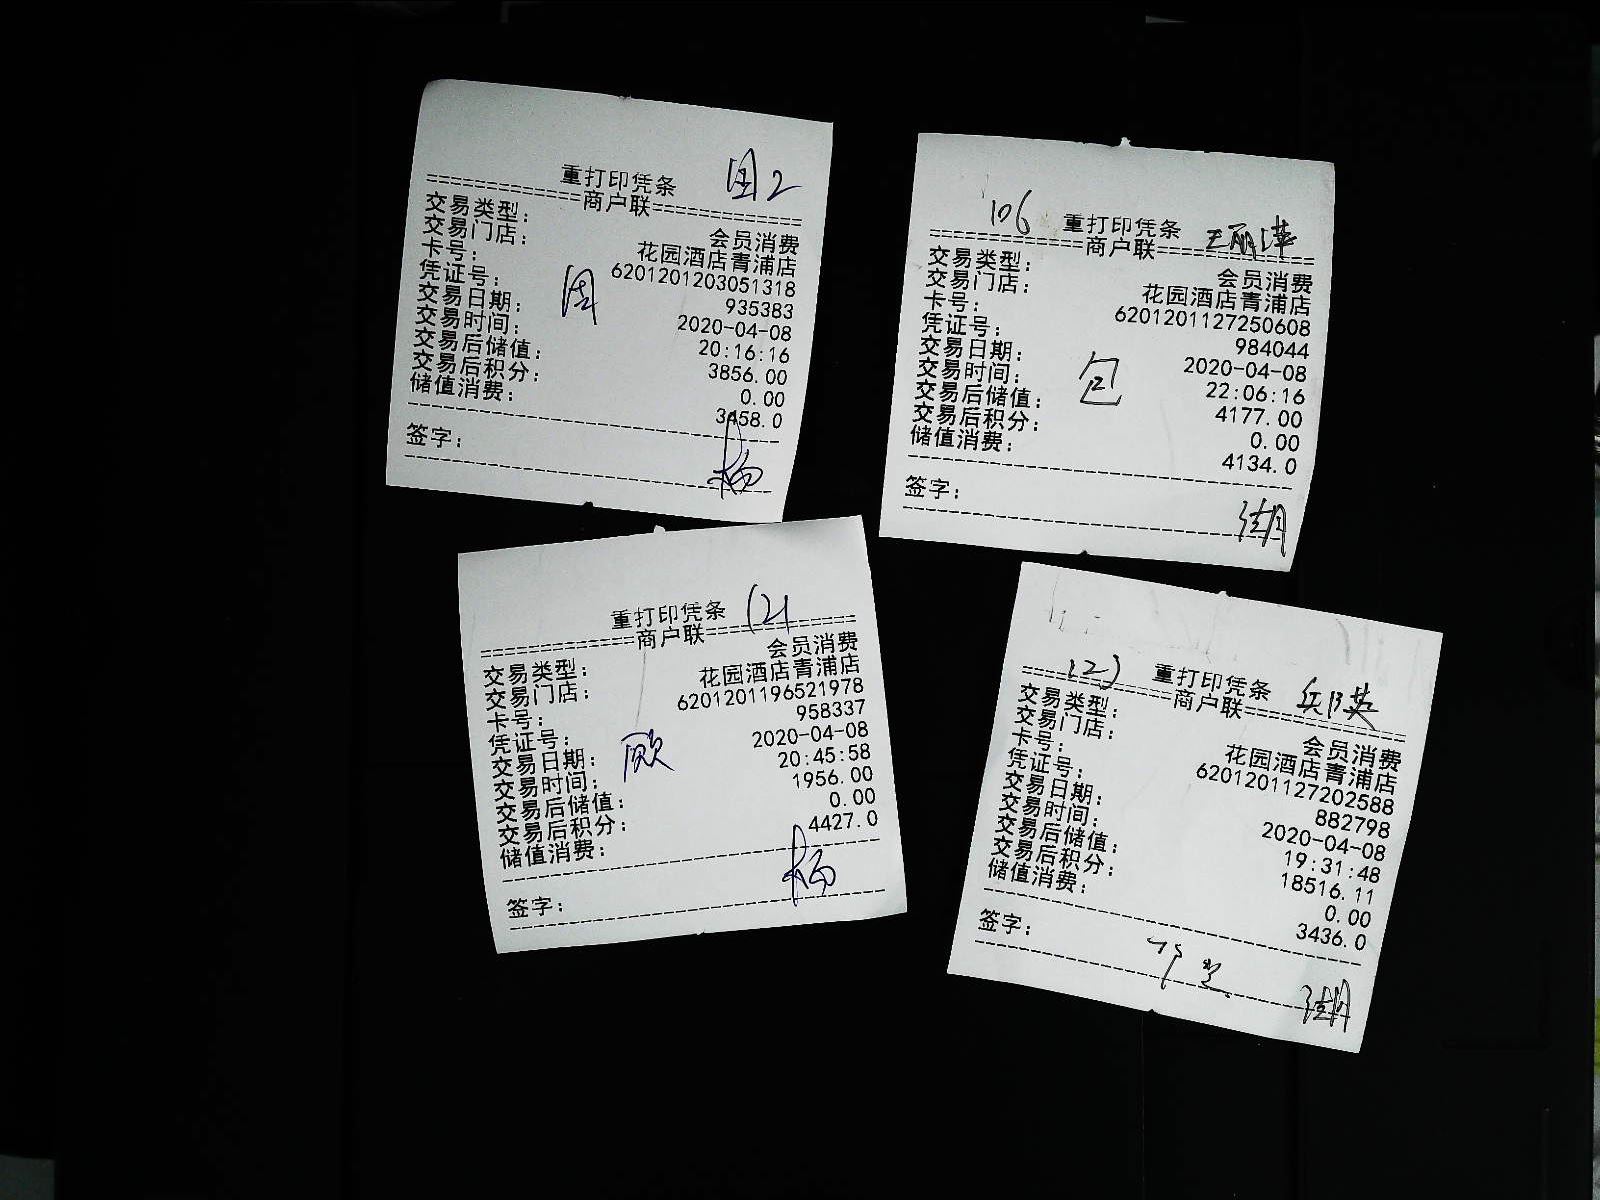 重打印凭条
==========商户联==========
交易类型: 会员消费
交易门店: 花园酒店青浦店
卡号: 6201201203051318
凭证号: 935383
交易日期: 2020-04-08
交易时间: 20:16:16
交易后储值: 3856.00
交易后积分: 0.00
储值消费: 3458.0
签字:
杨
106 重打印凭条 王丽萍
==========商户联==========
交易类型: 会员消费
交易门店: 花园酒店青浦店
卡号: 6201201127250608
凭证号: 984044
交易日期: 2020-04-08
交易时间: 22:06:16
交易后储值: 4177.00
交易后积分: 0.00
储值消费: 4134.0
包
签字:
重打印凭条 121
==========商户联==========
交易类型: 会员消费
交易门店: 花园酒店青浦店
卡号: 6201201196521978
凭证号: 958337
交易日期: 2020-04-08
交易时间: 20:45:58
交易后储值: 1956.00
交易后积分: 0.00
储值消费: 4427.0
签字:
杨
重打印凭条
==========商户联==========
交易类型: 会员消费
交易门店: 花园酒店青浦店
卡号: 6201201127202588
凭证号: 882798
交易日期: 2020-04-08
交易时间: 19:31:48
交易后储值: 18516.11
交易后积分: 0.00
储值消费: 3436.0
签字: